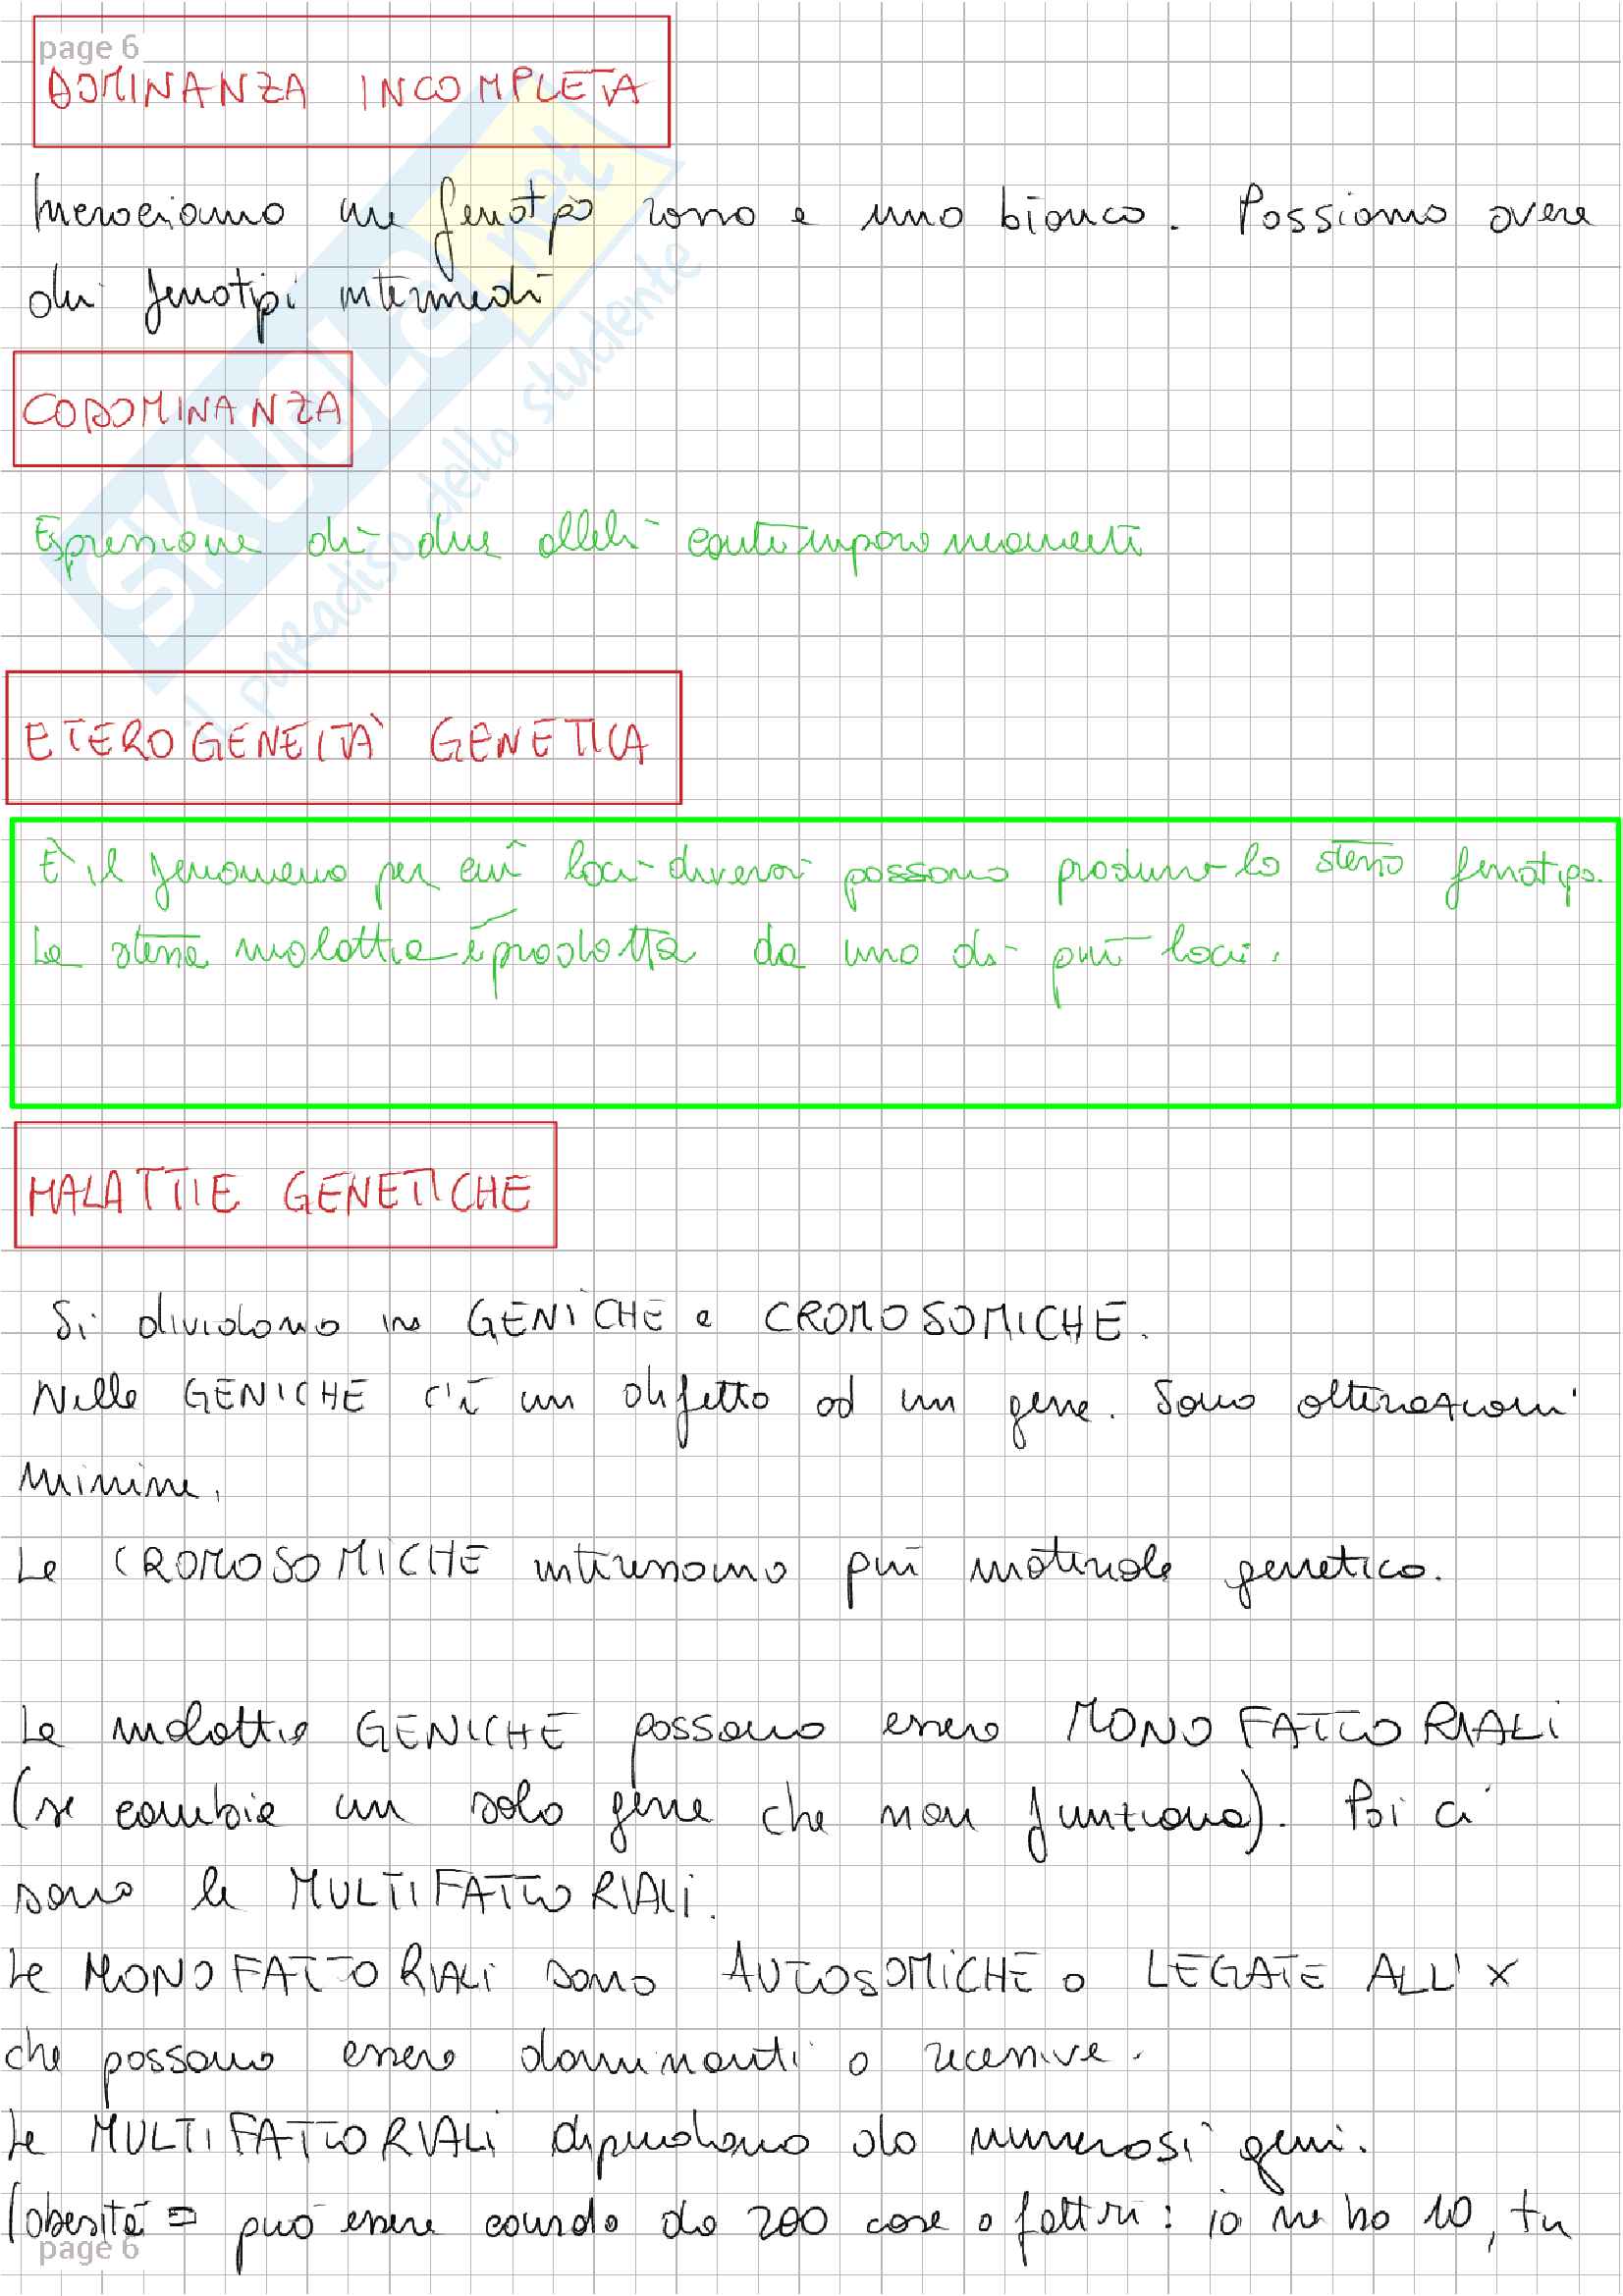 page 6
DOMINANZA INCOMPLETA
Incrociamo un fenotipo rosso e uno bianco. Possiamo avere
dei fenotipi intermedi
CODOMINANZA
Espressione di due alleli contemporaneamente
SKUOLA.net
il paradiso dello studente
ETEROGENEITÀ GENETICA
È il fenomeno per cui loci diversi possono produrre lo stesso fenotipo.
La stessa malattia è prodotta da uno di più loci.
MALATTIE GENETICHE
Si dividono in GENICHE e CROMOSOMICHE.
Nelle GENICHE c'è un difetto ad un gene. Sono alterazioni
minime.
Le CROMOSOMICHE interessano più materiale genetico.
Le malattie GENICHE possono essere MONOFATTORIALI
(se cambia un solo gene che non funziona). Poi ci
sono le MULTIFATTORIALI.
Le MONOFATTORIALI sono AUTOSOMICHE o LEGATE ALL'X
che possono essere dominanti o recessive.
Le MULTIFATTORIALI dipendono da numerosi geni.
(obesità = può essere causata da 200 cose o fattori: io ne ho 10, tu
page 6